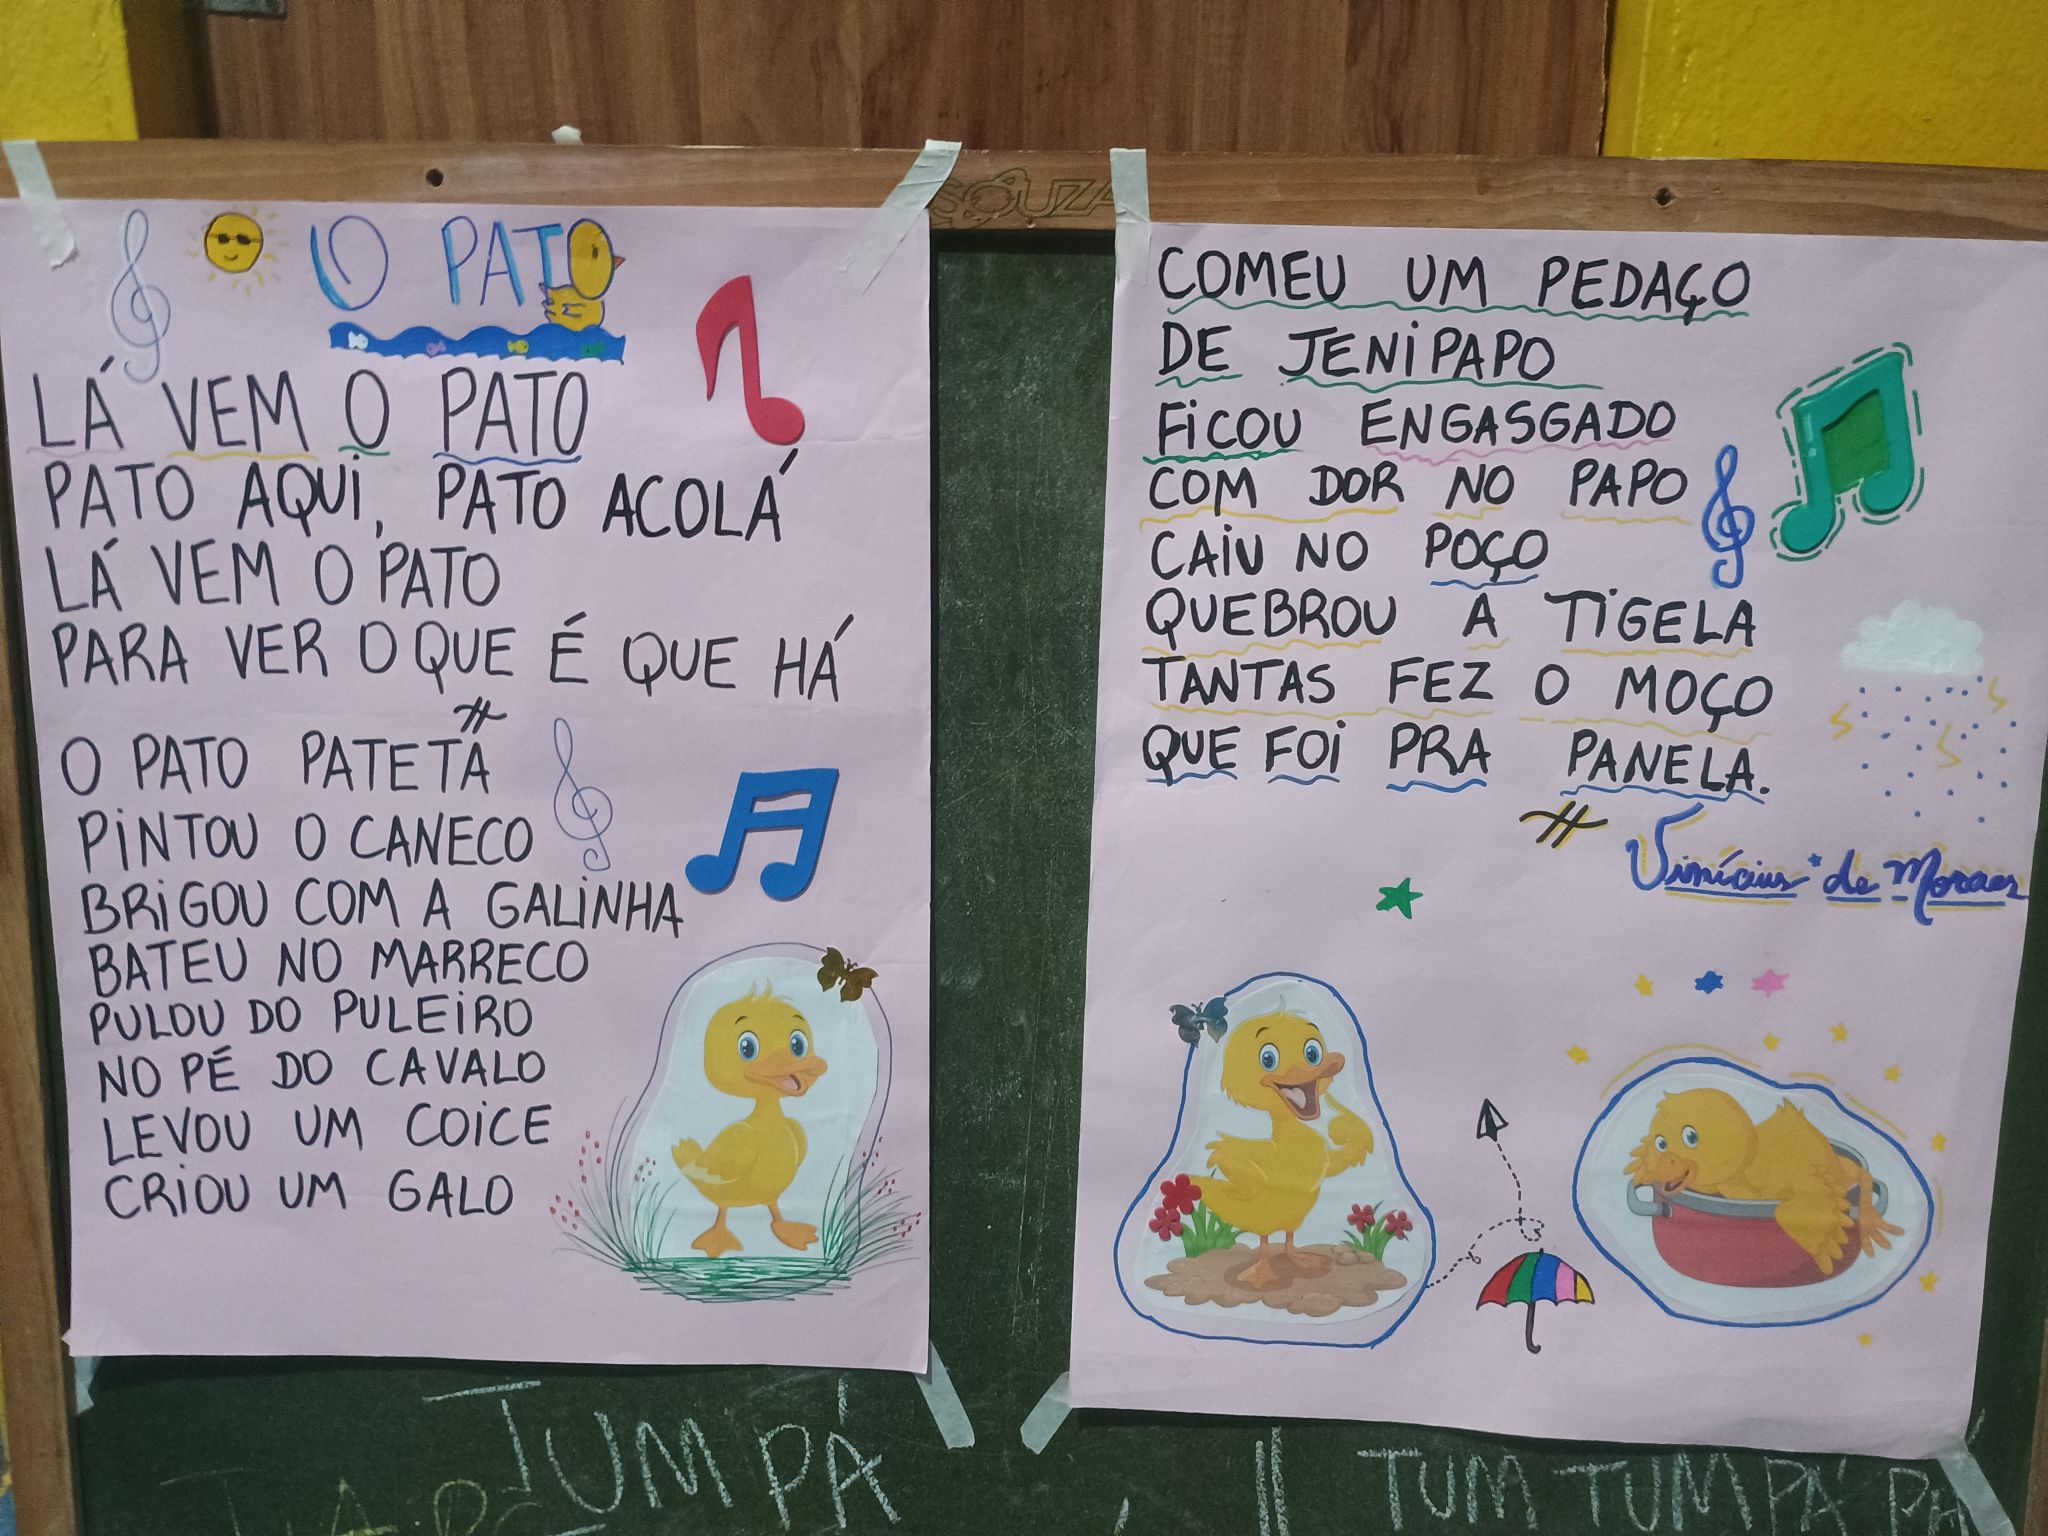 SOUZA
O PATO
LÁ VEM O PATO
PATO AQUI, PATO ACOLÁ
LÁ VEM O PATO
PARA VER O QUE É QUE HÁ
O PATO PATETA
PINTOU O CANECO
BRIGOU COM A GALINHA
BATEU NO MARRECO
PULOU DO PULEIRO
NO PÉ DO CAVALO
LEVOU UM COICE
CRIOU UM GALO
COMEU UM PEDAÇO
DE JENIPAPO
FICOU ENGASGADO
COM DOR NO PAPO
CAIU NO POÇO
QUEBROU A TIGELA
TANTAS FEZ O MOÇO
QUE FOI PRA PANELA.
Vinícius de Moraes
TUM PÁ
TUM TUM PÁ PÁ